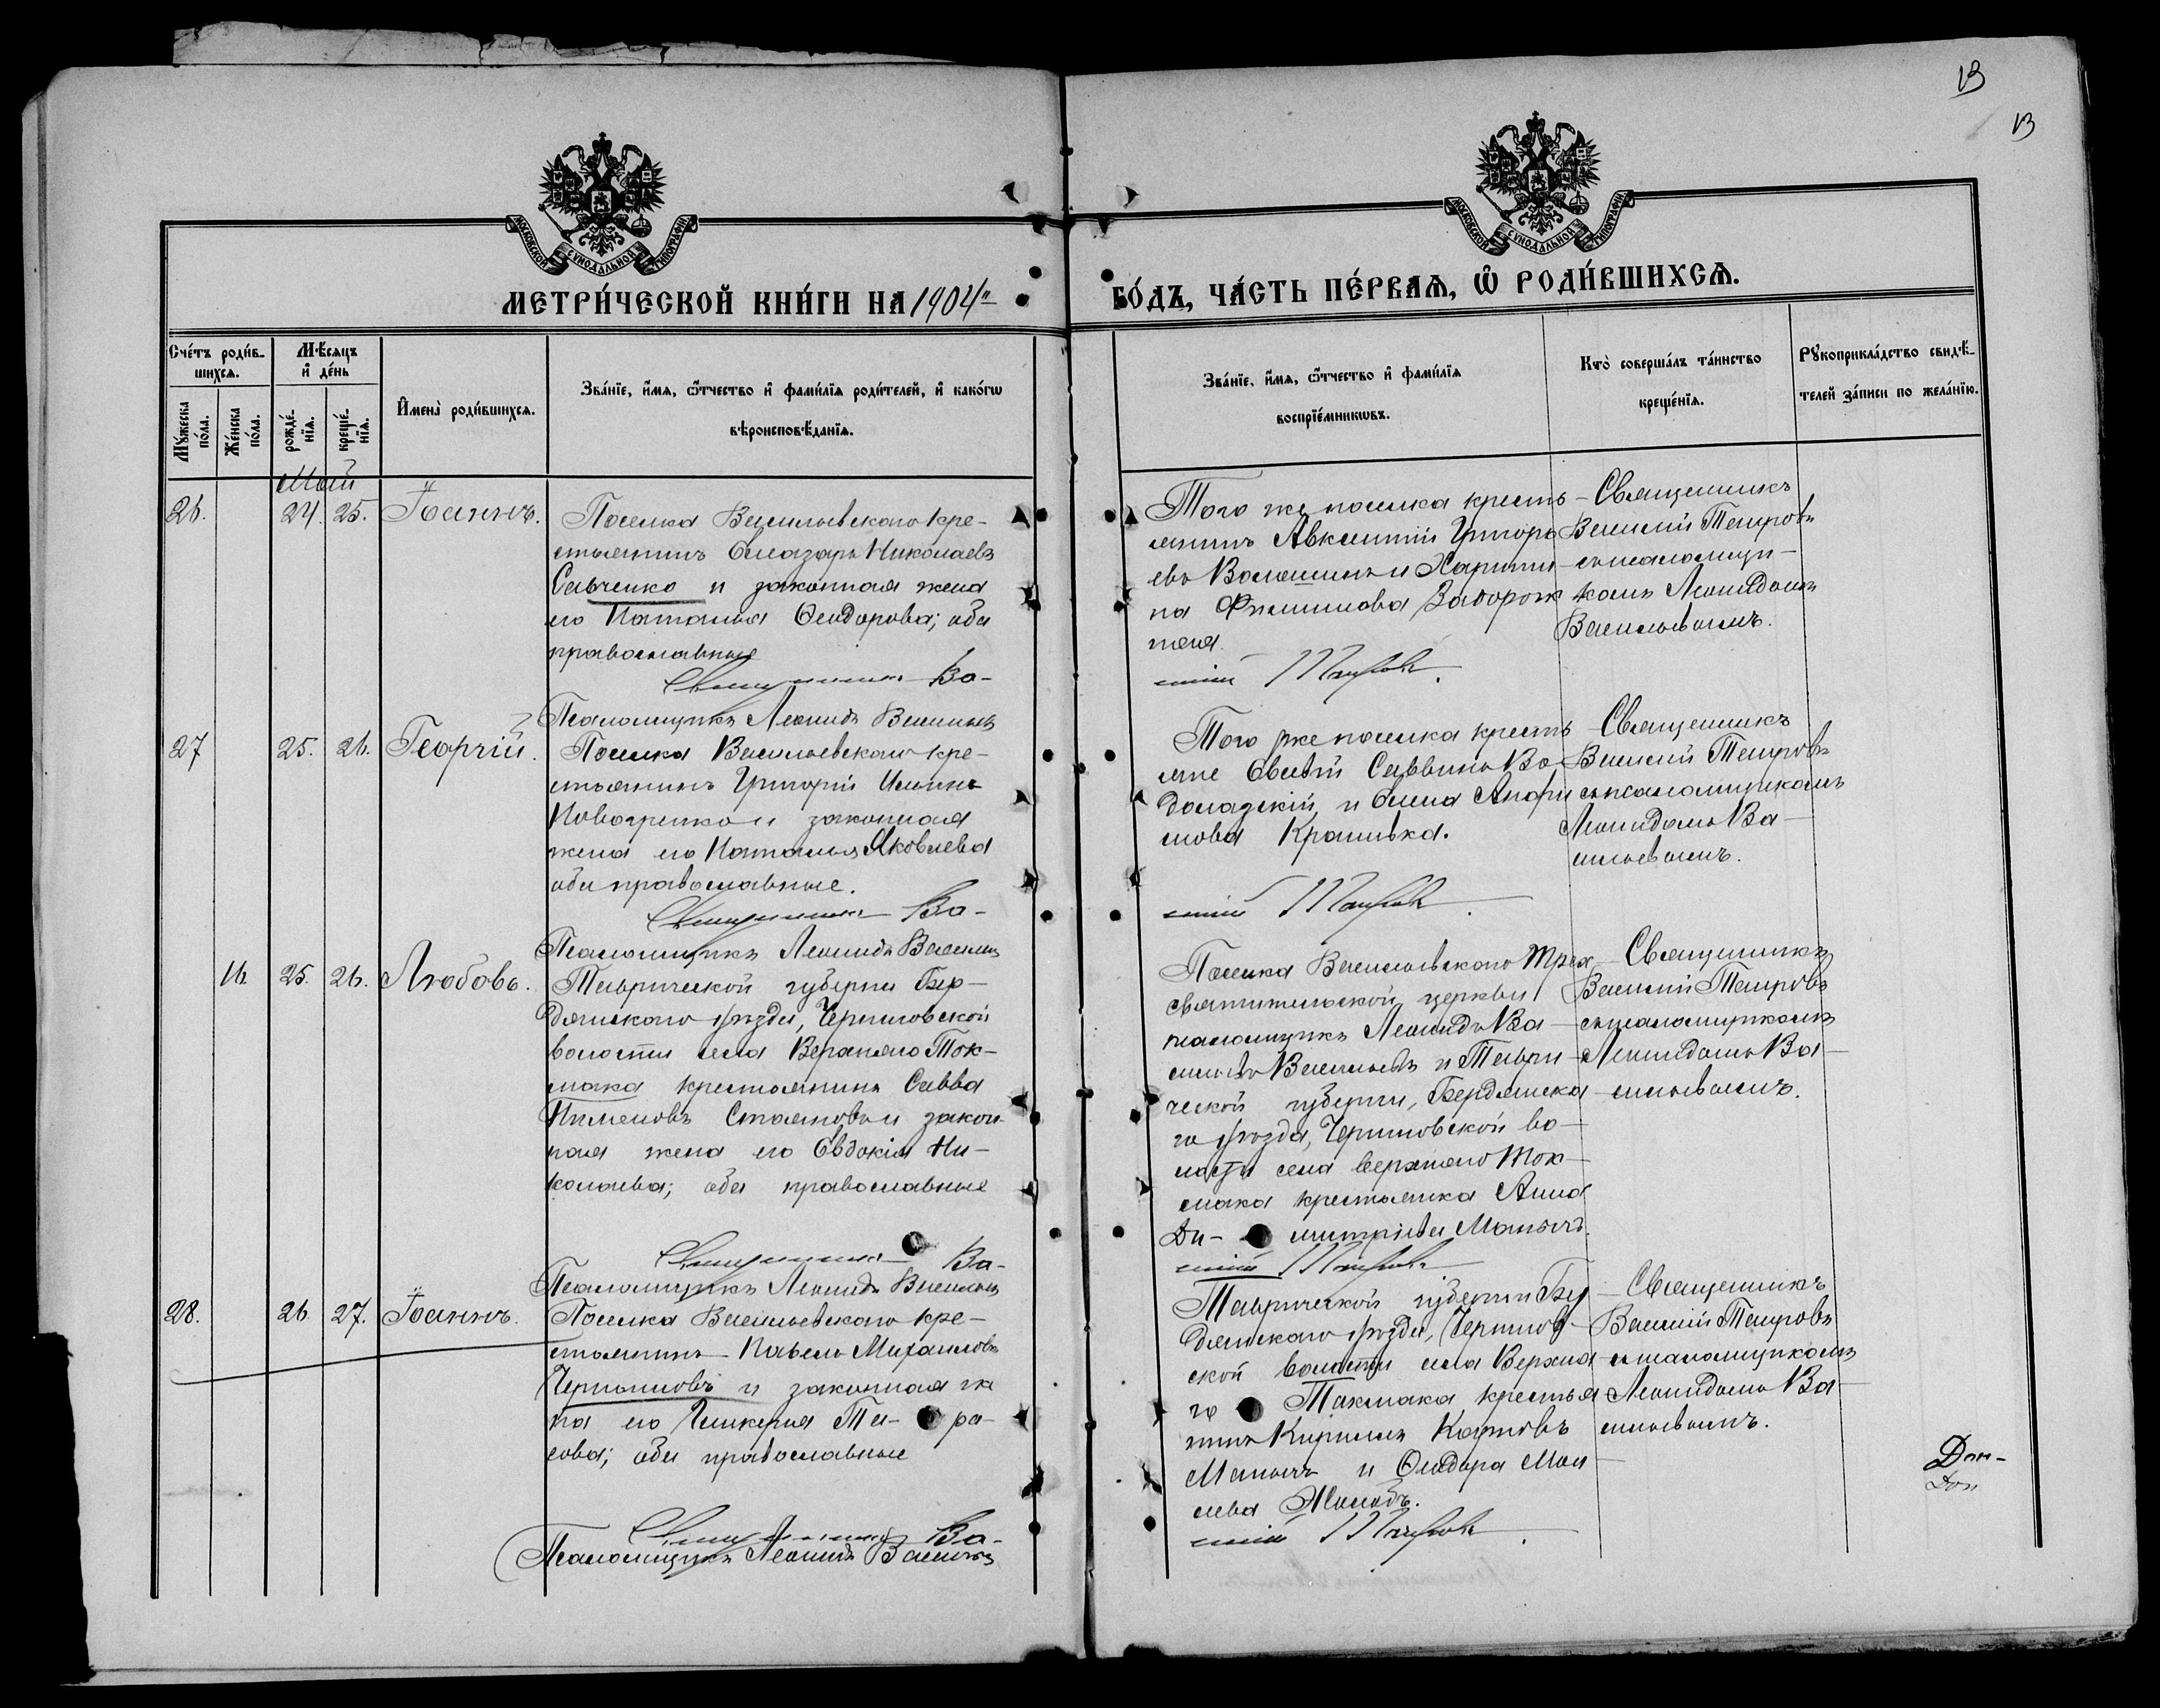 13
13
МОСКОВСКОЙ СУНОДАЛЬНОЙ ТИПОГРАФІИ
МОСКОВСКОЙ СУНОДАЛЬНОЙ ТИПОГРАФІИ
МЕТРИ́ЧЕСКОЙ КНИ́ГИ НА 1904й
ГО́ДЪ, ЧА́СТЬ ПЕ́РВАѦ, Ѡ҆ РОДИ́ВШИХСѦ.
Сче́тъ роди́в-
шихсѧ.
Мѣсѧцъ
и҆ де́нь
Мꙋ́жеска
по́ла.
Же́нска
по́ла.
рожде́-
нїѧ.
креще́-
нїѧ.
И҆мена̀ роди́вшихсѧ.
Зва́нїе, и҆́мѧ, ѻ҆́тчество и҆ фами́лїѧ роди́телей, и҆ како́гѡ
вѣроисповѣ́данїѧ.
Зва́нїе, и҆́мѧ, ѻ҆́тчество и҆ фами́лїѧ
воспрїе́мникѡвъ.
Кто̀ соверша́лъ та́инство
креще́нїѧ.
Рꙋкоприкла́дство свидѣ́-
телей за́писи по жела́нїю.
Май
26. 24. 25. Іоаннъ.
Поселка Васильевскаго кре-
стьянинъ Елеазаръ Николаевъ
Савченко и законная жена
его Наталья Ѳеодорова; оба
православные
Священникъ Ва-
Псаломщикъ Леонидъ Васильевъ
Того же поселка кресть-
янинъ Авксентій Григорь
евъ Волошинъ и Харити-
на Филиппова Запорож
ская.
силій
Священникъ
Василій
съ псаломщи-
комъ Леонидомъ
Васильевымъ.
27 25. 26. Георгій.
Поселка Васильевскаго кре-
стьянинъ Григорій Ильинъ
и законная
жена его Наталья Яковлева
оба православные.
Священникъ Ва-
Псаломщикъ Леонидъ Васильевъ
Того же поселка кресть
яне Евсевій Саввинъ Во-
долазскій и Елена
нова
силій
Священникъ
Василій
съ псаломщикомъ
Леонидомъ Ва-
сильевымъ.
16. 25. 26. Любовь.
Таврической губерніи Бер-
дянскаго уѣзда, Черниговской
волости села Верхняго Ток-
мака крестьянинъ Савва
Пименовъ Стояновъ и закон-
ная жена его Евдокія Ни-
колаева; оба православные
Священникъ Ва-
Псаломщикъ Леонидъ Васильевъ
Поселка Васильевскаго Трех-
святительской церкви
псаломщикъ Леонидъ Ва-
сильевъ Васильевъ и Таври-
ческой губерніи, Бердянска
го уѣзда, Черниговской во-
лости села Верхняго Ток-
мака крестьянка Анна
Ди- митріева
силій
Священникъ
Василій
съ псаломщикомъ
Леонидомъ Ва-
сильевымъ.
28. 26. 27. Іоаннъ.
Поселка Васильевскаго кре-
стьянинъ Павелъ Михаиловъ
Чернышовъ и законная же
на его Гликерія Та- ра-
сова; оба православные
Священникъ Ва-
Псаломщикъ Леонидъ Васильевъ
Таврической губерніи Бер-
дянскаго уѣзда, Чернигов-
ской волости села Верхня-
го Такмака крестья
нинъ Кириллъ Карповъ
и Ѳеодора Мои
сеева
силій
Священникъ
Василій
съ псаломщикомъ
Леонидомъ Ва-
сильевымъ.